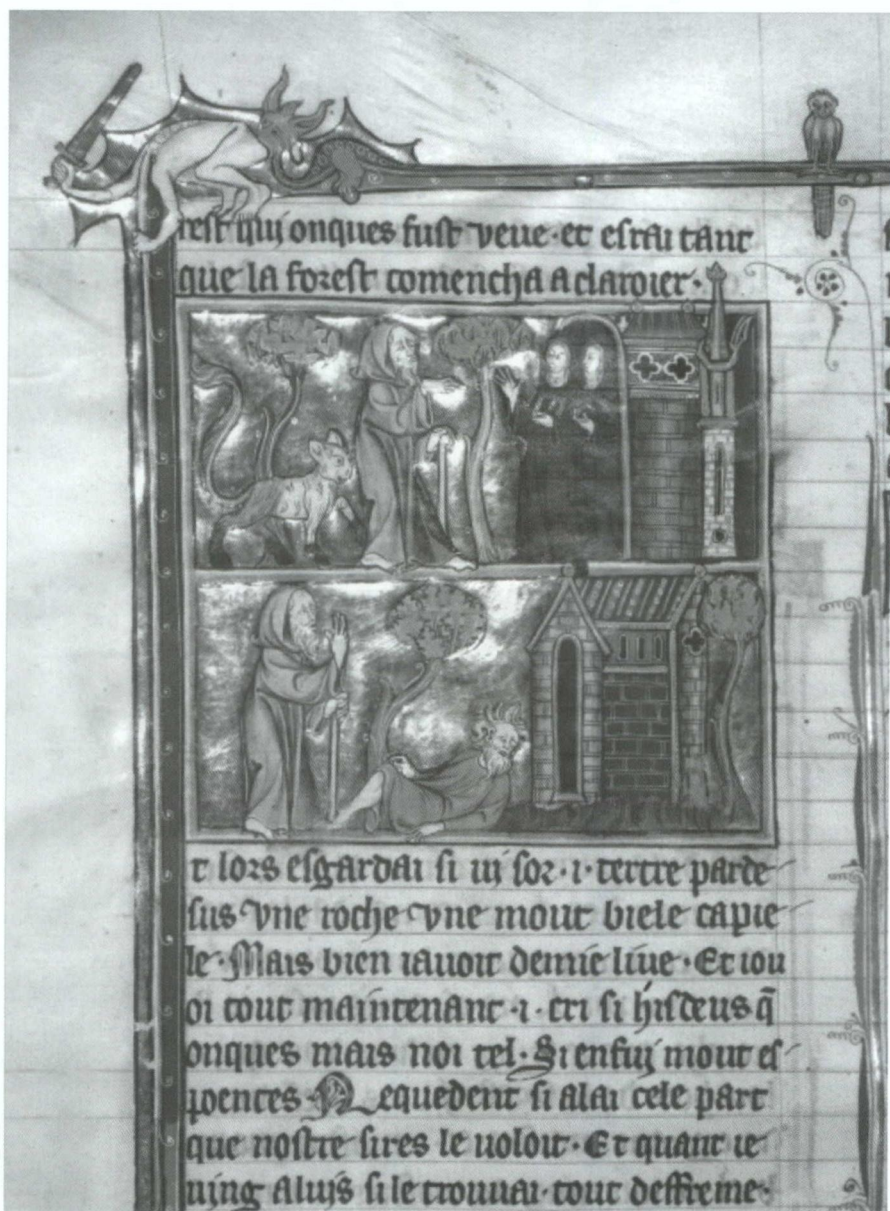 rest qui onques fust veue·et esrai tant
que la forest comencha a claroier·
t lors esgardai si ui sor·i·tertre parde
sus vne roche vne mout biele capie
le·Mais bien iauoit demie liue·Et iou
oi tout maintenant·i·cri si hisdeus q̃
onques mais noi tel·Si enfui mout es
poentes Nequedent si alai cele part
que nostre sires le uoloit·Et quant ie
uing a luis si le trouuai·tout deffreme·